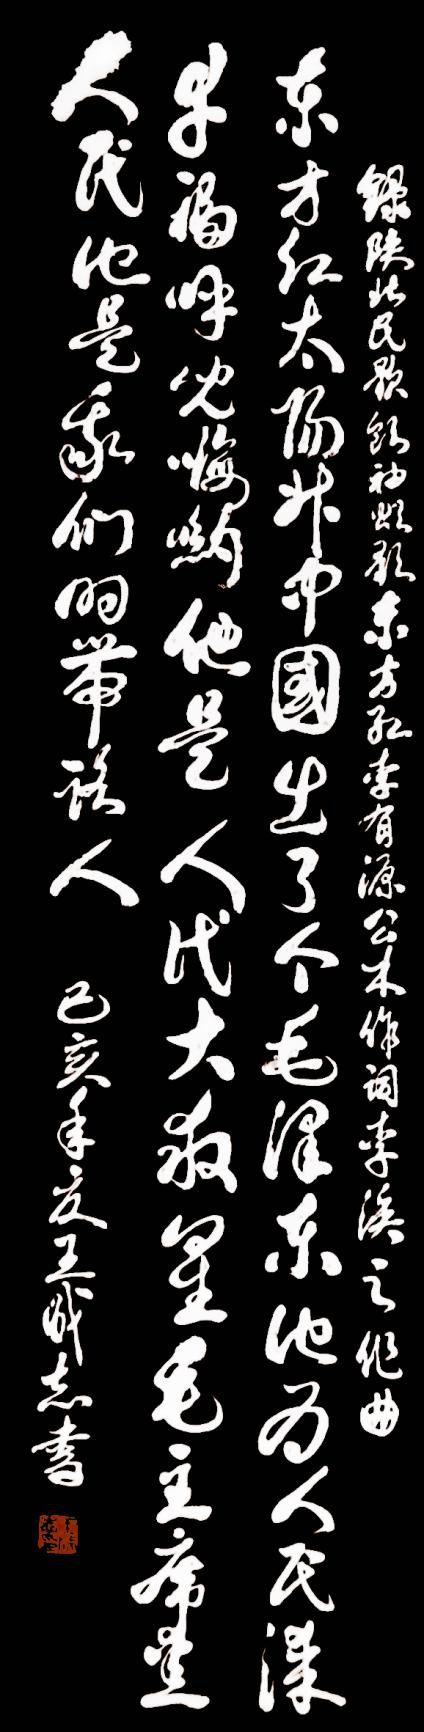 錄陕北民歌領袖颂歌东方红李有源公木作词李涣之作曲
东方红太阳升中國出了个毛泽东他为人民谋
幸福呼儿嗨喲他是人民大救星毛主席爱
人民他是我们的带路人
己亥年夏王成志書